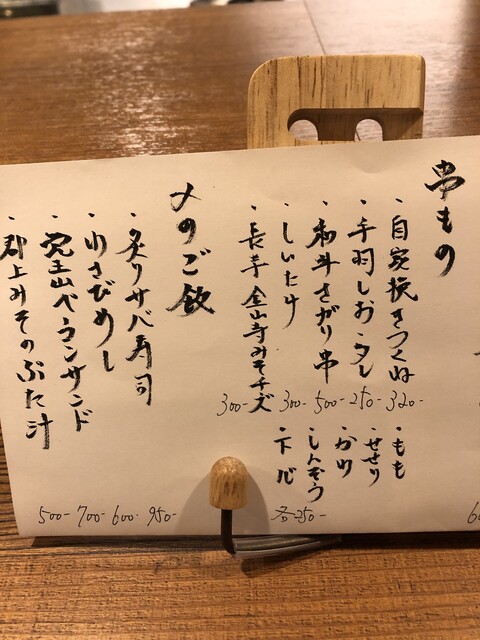 串もの
・自家挽きつくね 320-
・手羽しお・タレ 250-
・和牛さがり串 500-
・しいたけ 300-
・長芋金山寺みそチーズ 300-
・もも
・せせり
・かわ
・しんぞう
・下心
各250-
〆のご飯
・炙りサバ寿司 950-
・わさびめし 600-
・覚王山ベーコンサンド 700-
・郡上みそのぶた汁 500-